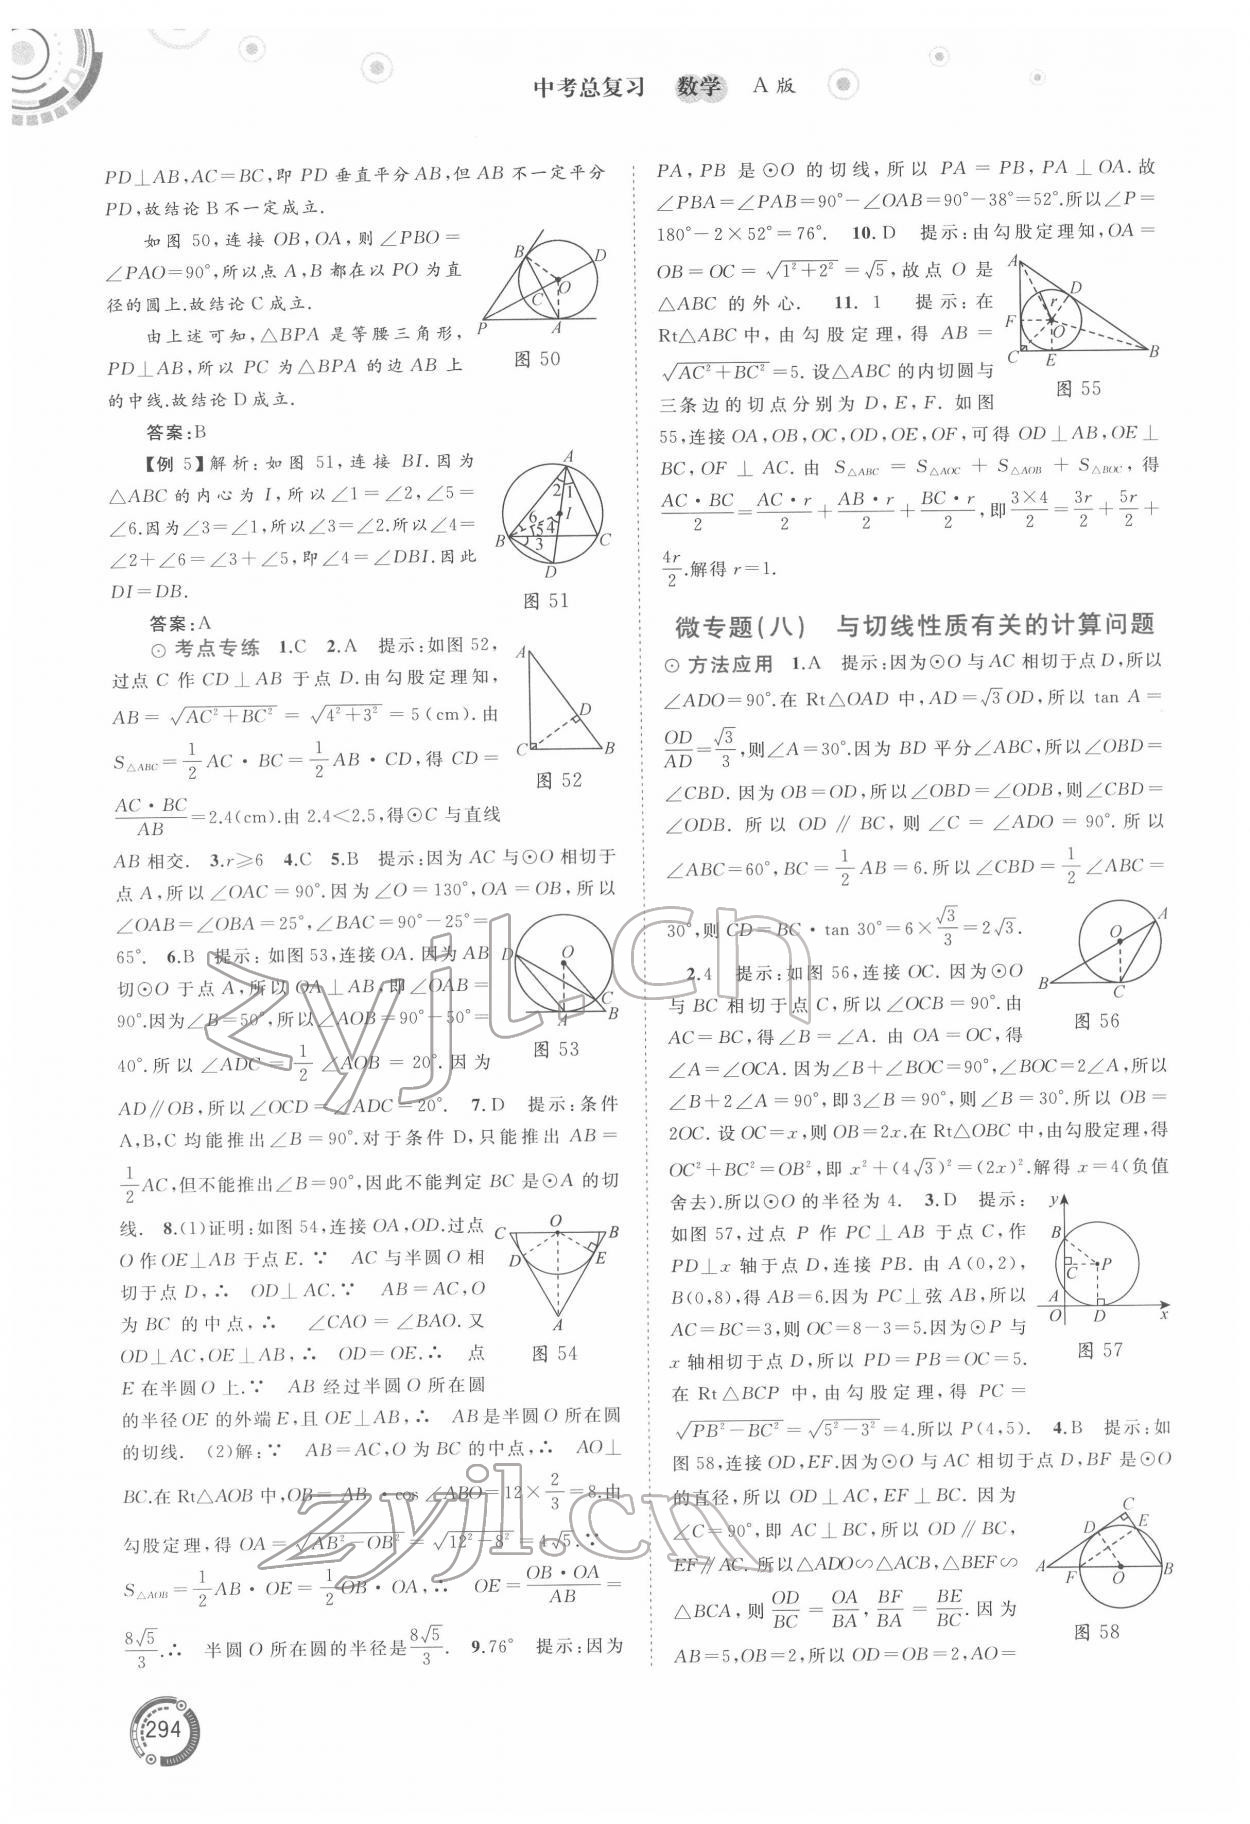 中考总复习 数学 A版
PD⊥AB,AC=BC,即 PD 垂直平分 AB,但 AB 不一定平分
PD,故结论 B 不一定成立.
如图 50,连接 OB,OA,则∠PBO=
∠PAO=90°,所以点 A,B 都在以 PO 为直
径的圆上.故结论 C 成立.
由上述可知,△BPA 是等腰三角形,
PD⊥AB,所以 PC 为△BPA 的边 AB 上
的中线.故结论 D 成立.
B D O C P A
图 50
答案:B
【例 5】解析:如图 51,连接 BI.因为
△ABC 的内心为 I,所以∠1=∠2,∠5=
∠6.因为∠3=∠1,所以∠3=∠2.所以∠4=
∠2+∠6=∠3+∠5,即∠4=∠DBI.因此
DI=DB.
A 2 1 6 I 5 4 B 3 C D
图 51
答案:A
⊙ 考点专练 1.C 2.A 提示:如图 52,
过点 C 作 CD⊥AB 于点 D.由勾股定理知,
AB=√(AC²+BC²)=√(4²+3²)=5(cm).由
S△ABC=1/2 AC·BC=1/2 AB·CD,得 CD=
AC·BC/AB=2.4(cm).由 2.4<2.5,得⊙C 与直线
A D C B
图 52
AB 相交. 3.r≥6 4.C 5.B 提示:因为 AC 与⊙O 相切于
点 A,所以∠OAC=90°.因为∠O=130°,OA=OB,所以
∠OAB=∠OBA=25°,∠BAC=90°-25°=
65°. 6.B 提示:如图 53,连接 OA.因为 AB
切⊙O 于点 A,所以 OA⊥AB,即∠OAB=
90°.因为∠B=50°,所以∠AOB=90°-50°=
40°.所以∠ADC=1/2∠AOB=20°.因为
O D C A B
图 53
AD∥OB,所以∠OCD=∠ADC=20°. 7.D 提示:条件
A,B,C 均能推出∠B=90°.对于条件 D,只能推出 AB=
1/2 AC,但不能推出∠B=90°,因此不能判定 BC 是⊙A 的切
线. 8.(1)证明:如图 54,连接 OA,OD.过点
O 作 OE⊥AB 于点 E.∵ AC 与半圆 O 相
切于点 D,∴ OD⊥AC.∵ AB=AC,O
为 BC 的中点,∴ ∠CAO=∠BAO.又
OD⊥AC,OE⊥AB,∴ OD=OE.∴ 点
E 在半圆 O 上.∵ AB 经过半圆 O 所在圆
C O B D E A
图 54
的半径 OE 的外端 E,且 OE⊥AB,∴ AB 是半圆 O 所在圆
的切线. (2)解:∵ AB=AC,O 为 BC 的中点,∴ AO⊥
BC.在 Rt△AOB 中,OB=AB·cos∠ABO=12×2/3=8.由
勾股定理,得 OA=√(AB²-OB²)=√(12²-8²)=4√5.∵
S△AOB=1/2 AB·OE=1/2 OB·OA,∴ OE=OB·OA/AB=
8√5/3.∴ 半圆 O 所在圆的半径是8√5/3. 9.76° 提示:因为
PA,PB 是⊙O 的切线,所以 PA=PB,PA⊥OA.故
∠PBA=∠PAB=90°-∠OAB=90°-38°=52°.所以∠P=
180°-2×52°=76°. 10.D 提示:由勾股定理知,OA=
OB=OC=√(1²+2²)=√5,故点 O 是
△ABC 的外心. 11.1 提示:在
Rt△ABC 中,由勾股定理,得 AB=
√(AC²+BC²)=5.设△ABC 的内切圆与
三条边的切点分别为 D,E,F.如图
A D F r O C E B
图 55
55,连接 OA,OB,OC,OD,OE,OF,可得 OD⊥AB,OE⊥
BC,OF⊥AC.由 S△ABC=S△AOC+S△AOB+S△BOC,得
AC·BC/2=AC·r/2+AB·r/2+BC·r/2,即3×4/2=3r/2+5r/2+
4r/2.解得 r=1.
微专题(八) 与切线性质有关的计算问题
⊙ 方法应用 1.A 提示:因为⊙O 与 AC 相切于点 D,所以
∠ADO=90°.在 Rt△OAD 中,AD=√3OD,所以 tan A=
OD/AD=√3/3,则∠A=30°.因为 BD 平分∠ABC,所以∠OBD=
∠CBD.因为 OB=OD,所以∠OBD=∠ODB,则∠CBD=
∠ODB.所以 OD∥BC,则∠C=∠ADO=90°.所以
∠ABC=60°,BC=1/2 AB=6.所以∠CBD=1/2∠ABC=
30°,则 CD=BC·tan 30°=6×√3/3=2√3.
2.4 提示:如图 56,连接 OC.因为⊙O
与 BC 相切于点 C,所以∠OCB=90°.由
AC=BC,得∠B=∠A.由 OA=OC,得
A O B C
图 56
∠A=∠OCA.因为∠B+∠BOC=90°,∠BOC=2∠A,所以
∠B+2∠A=90°,即 3∠B=90°,则∠B=30°.所以 OB=
2OC.设 OC=x,则 OB=2x.在 Rt△OBC 中,由勾股定理,得
OC²+BC²=OB²,即 x²+(4√3)²=(2x)².解得 x=4(负值
舍去).所以⊙O 的半径为 4. 3.D 提示:
如图 57,过点 P 作 PC⊥AB 于点 C,作
PD⊥x 轴于点 D,连接 PB.由 A(0,2),
B(0,8),得 AB=6.因为 PC⊥弦 AB,所以
AC=BC=3,则 OC=8-3=5.因为⊙P 与
x 轴相切于点 D,所以 PD=PB=OC=5.
在 Rt△BCP 中,由勾股定理,得 PC=
y B C P A O D x
图 57
√(PB²-BC²)=√(5²-3²)=4.所以 P(4,5). 4.B 提示:如
图 58,连接 OD,EF.因为⊙O 与 AC 相切于点 D,BF 是⊙O
的直径,所以 OD⊥AC,EF⊥BC.因为
∠C=90°,即 AC⊥BC,所以 OD∥BC,
EF∥AC.所以△ADO∽△ACB,△BEF∽
△BCA,则OD/BC=OA/BA,BF/BA=BE/BC.因为
AB=5,OB=2,所以 OD=OB=2,AO=
C D E A F O B
图 58
294
zyjl.cn
zyjl.cn